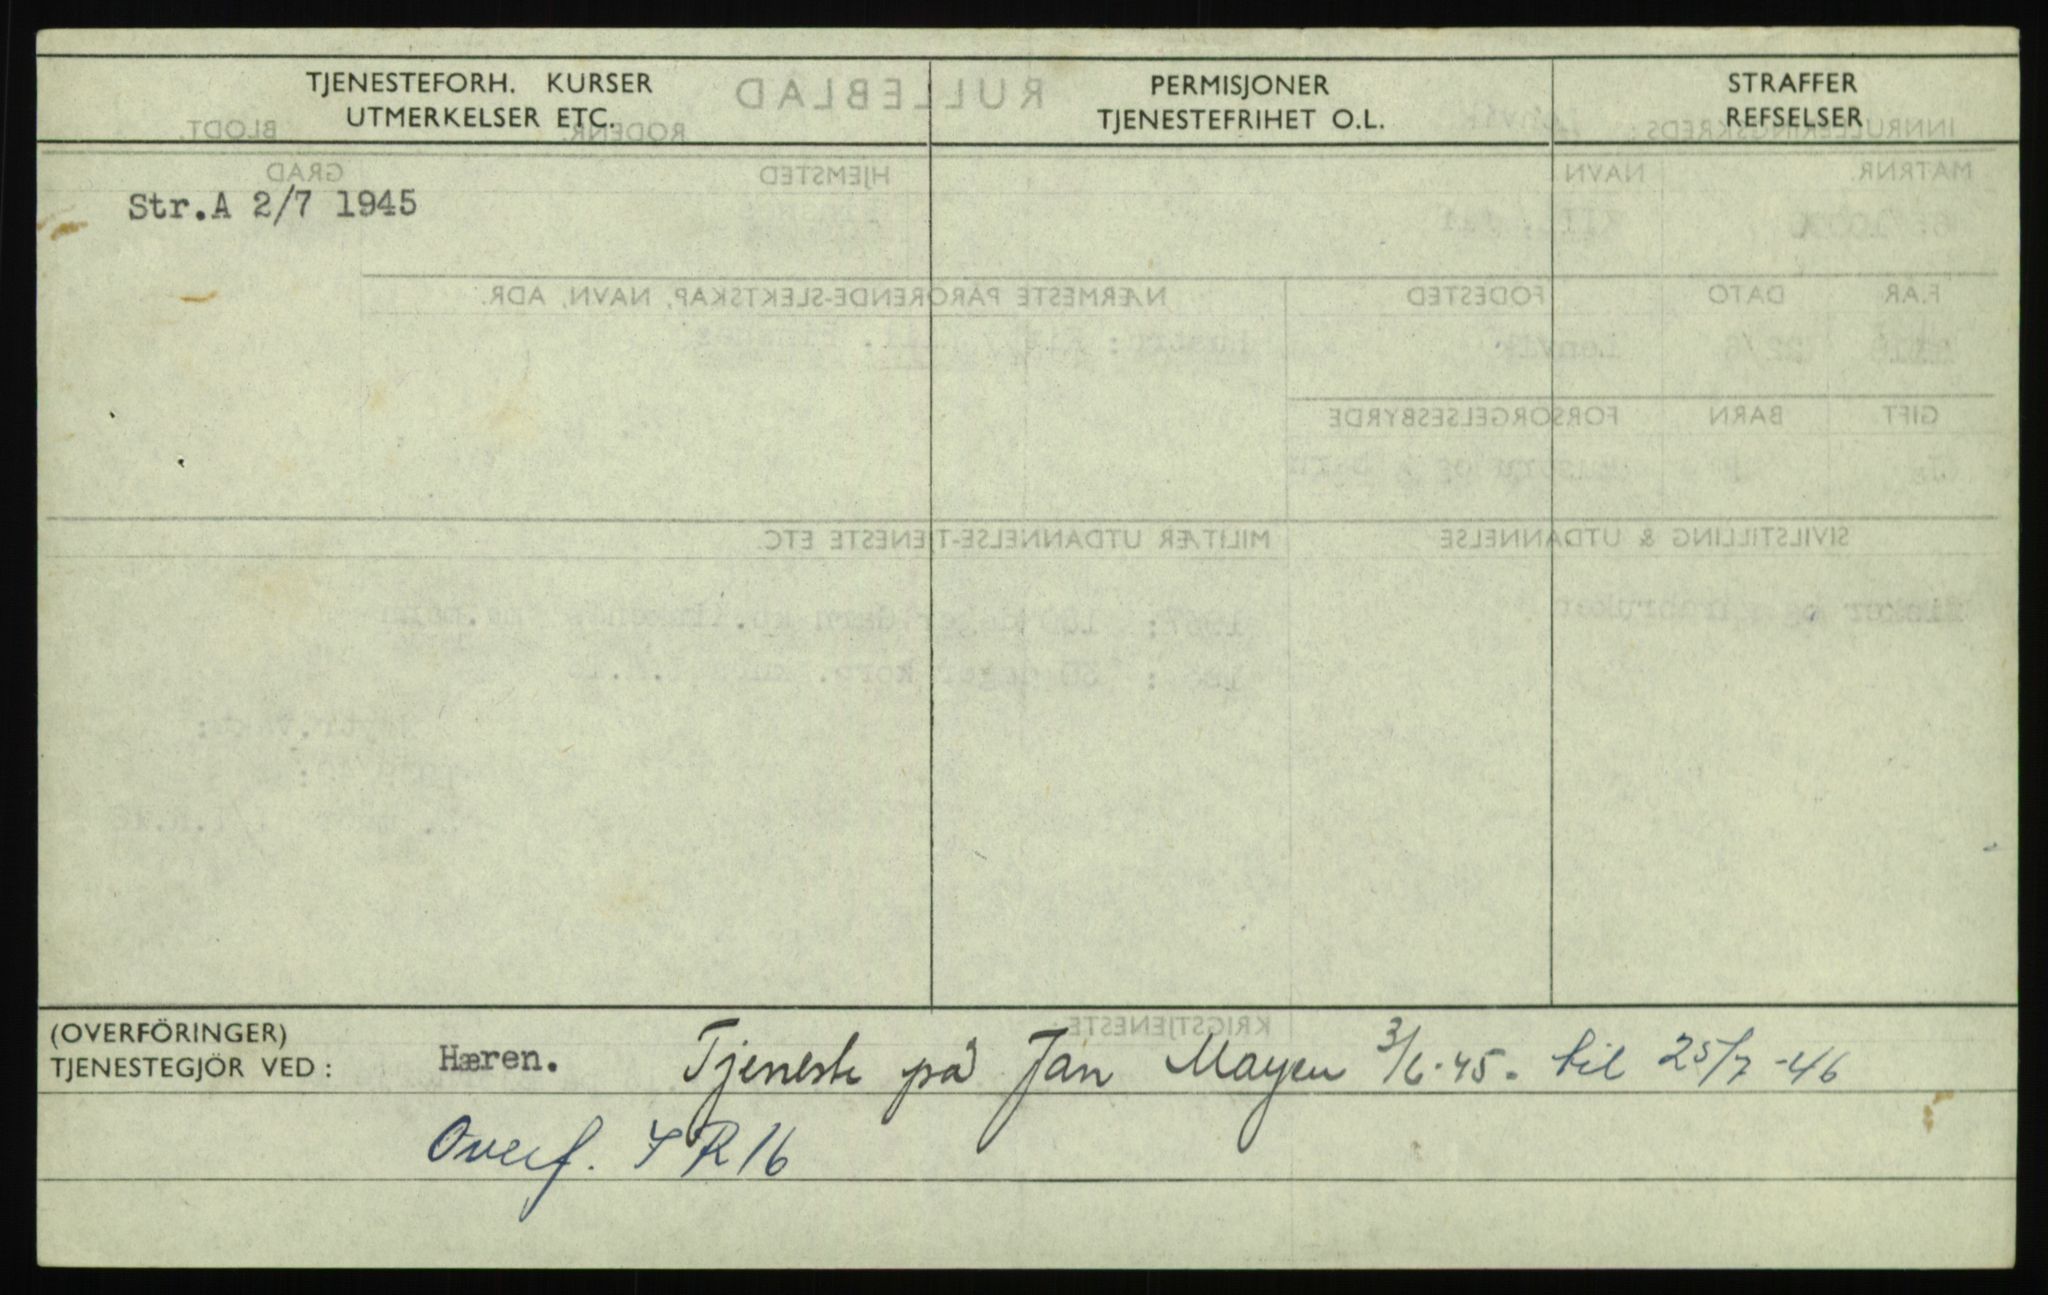 TJENESTEFORH. KURSER
UTMERKELSER ETC.
PERMISJONER
TJENESTEFRIHET O.L.
STRAFFER
REFSELSER
Str.A 2/7 1945
(OVERFÖRINGER)
TJENESTEGJÖR VED :
Hæren. Tjeneste på Jan Mayen 3/6-45. til 25/7-46
Overf. IR16